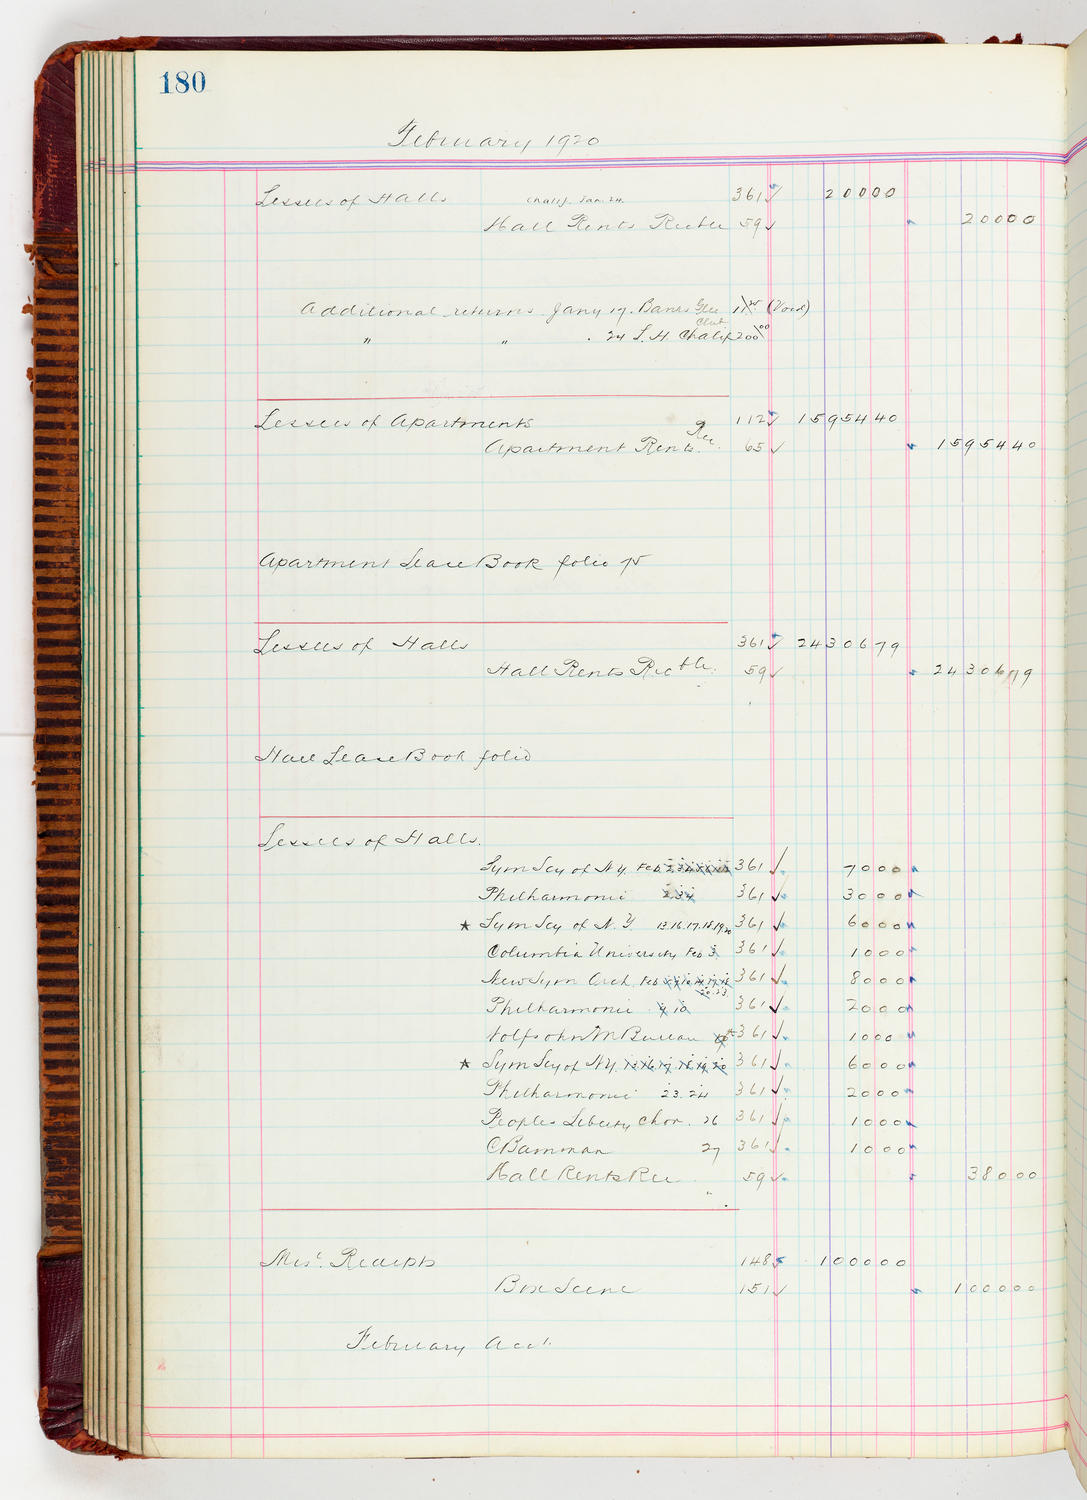 180
February 1920
Lessees of Halls Chalif. Jan. 24. 361 20000
Hall Rents Rec'ble 59 20000
Additional returns Jany 17. Banks Glee Club (Void)
" " . 24 L. H. Chalif 200 00
Lessees of Apartments 112 1595440
Apartment Rents Rec. 65 1595440
Apartment Lease Book folio 75
Lessees of Halls 361 2430679
Hall Rents Rec'ble. 59 2430679
Hall Lease Book folio
Lessees of Halls.
Sym Socy of N.Y. Feb 361 7000
Philharmonic 2.3.4 361 3000
* Sym Socy of N.Y. 13.16.17.18.19.20 361 6000
Columbia University Feb 3 361 1000
New Sym Orch. Feb 361 8000
Philharmonic 9 10 361 2000
Wolfsohn M Bureau 361 1000
* Sym Socy of N.Y. 13 16 17 18 19 20 361 6000
Philharmonic 23. 24 361 2000
Peoples Liberty Chor. 26 361 1000
C Bamman 27 361 1000
Hall Rents Rec 59 38000
"
Misc. Receipts 148 100000
Box Scene 151 100000
February Acct.